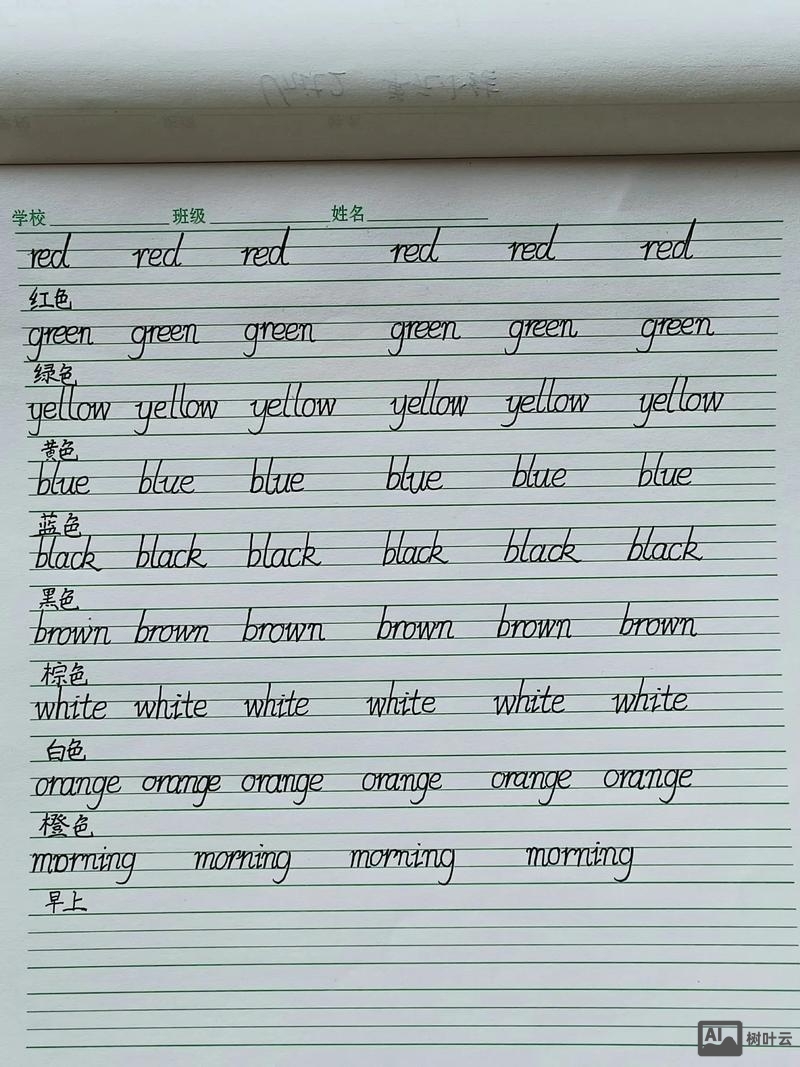 Unit2 第九小练
学校 班级 姓名
red red red red red red
红色
green green green green green green
绿色
yellow yellow yellow yellow yellow yellow
黄色
blue blue blue blue blue blue
蓝色
black black black black black black
黑色
brown brown brown brown brown brown
棕色
white white white white white white
白色
orange orange orange orange orange orange
橙色
morning morning morning morning
早上
AI 树叶云